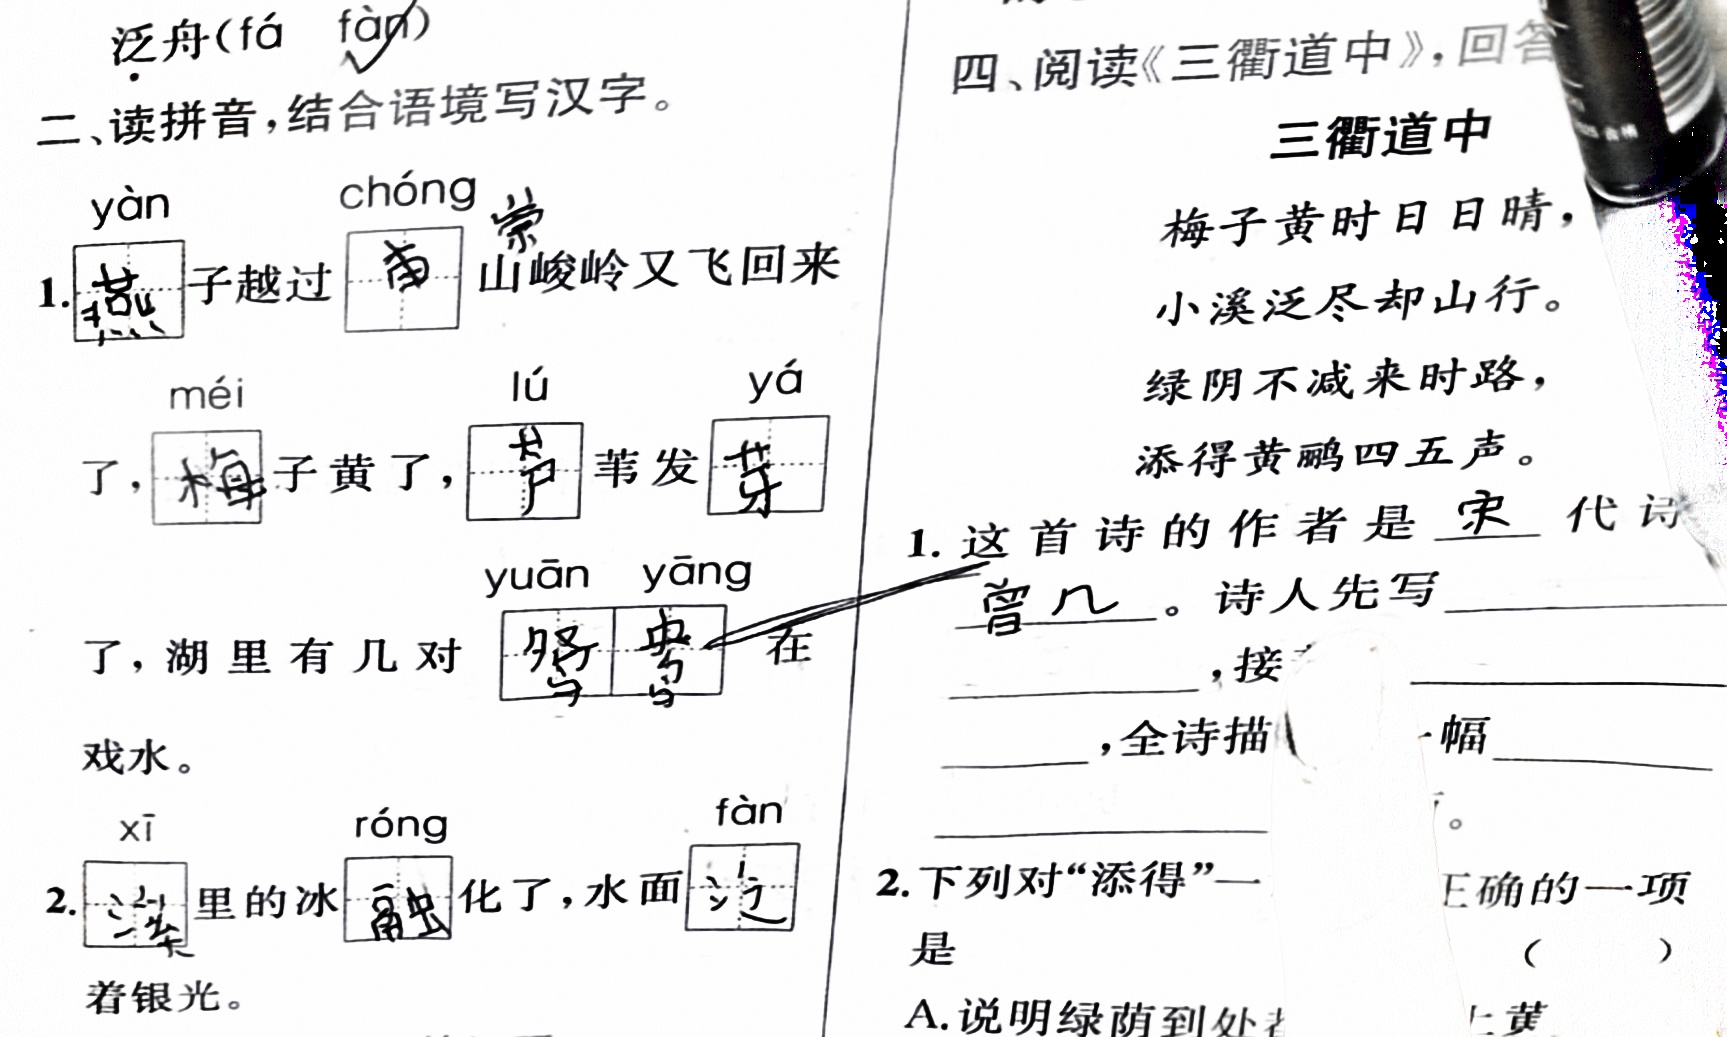 泛舟(fá fàn)
二、读拼音,结合语境写汉字。
yàn chóng 崇
1.燕子越过 山峻岭又飞回来
méi lú yá
了,梅子黄了,芦苇发芽
yuān yāng
了,湖里有几对鸳鸯在
戏水。
xī róng fàn
2.溪里的冰融化了,水面泛
着银光。
四、阅读《三衢道中》,回答
三衢道中
梅子黄时日日晴,
小溪泛尽却山行。
绿阴不减来时路,
添得黄鹂四五声。
1.这首诗的作者是 宋 代诗
曾几。诗人先写
,接
,全诗描 幅
。
2.下列对“添得”一 正确的一项
是 ( )
A.说明绿荫到处都 上黄